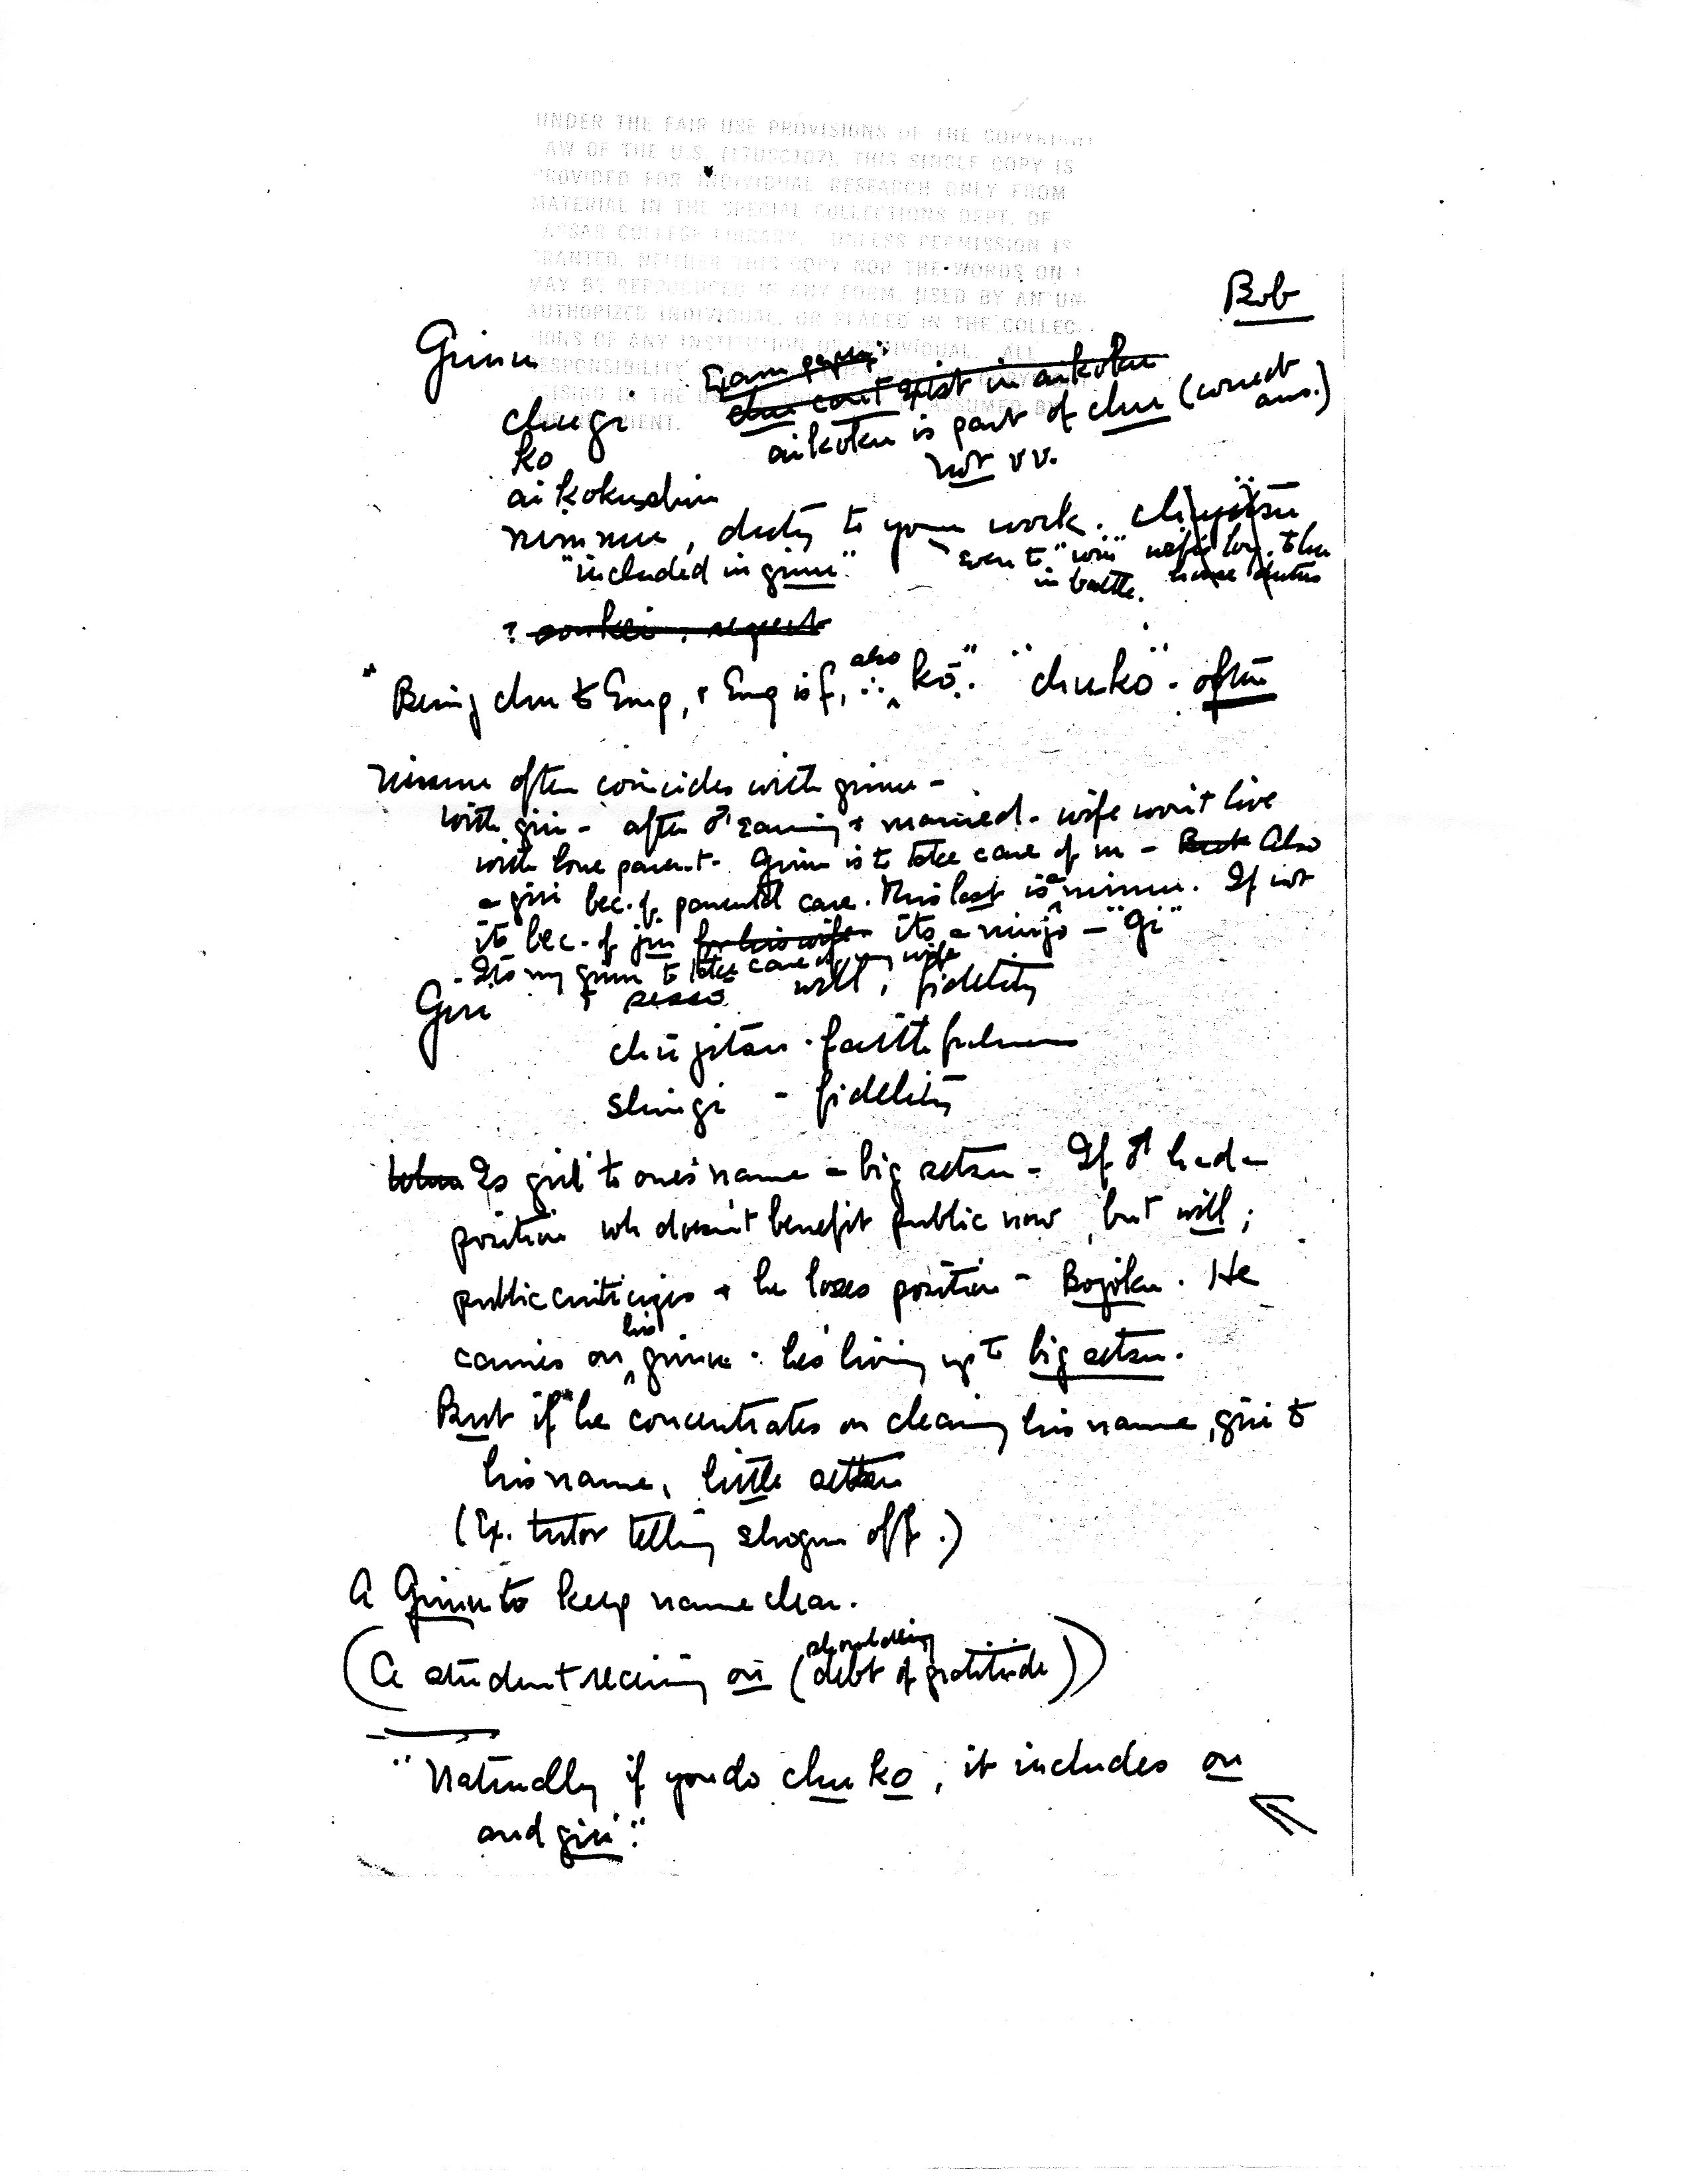 UNDER THE FAIR USE PROVISIONS OF THE COPYRIGHT
AW OF THE U.S. (17USC107). THIS SINGLE COPY IS
PROVIDED FOR INDIVIDUAL RESEARCH ONLY FROM
MATERIAL IN THE SPECIAL COLLECTIONS DEPT. OF
ASSAR COLLEGE LIBRARY. UNLESS PERMISSION IS
GRANTED, NEITHER THIS COPY NOR THE WORDS ON I
MAY BE REPRODUCED IN ANY FORM, USED BY AN UN-
AUTHORIZED INDIVIDUAL, OR PLACED IN THE COLLEC-
TIONS OF ANY INSTITUTION OR INDIVIDUAL. ALL
RESPONSIBILITY
ARISING IN THE ASSUMED BY
IENT.
Bob
Gimu
Exam papers:
chu can't exist in aikoku
chugi
aikoku is part of chu (correct ans.)
ko
not vv.
aikokushin
nimmu, duty to your work. chūjitsu
"included in gimu".
even to "win" in battle.
?
"Being chu to Emp, + Emp is f, ∴ also kō." "chuko" - often
Nimmu often coincides with gimu -
with giri - after ♂ earning + married - wife won't live
with lone parent. Gimu is to take care of m - But Also
a giri bec. of parental care. This last is a nimmu. If not
its bec. of jin for his wife its a ninjo - "Gi"
- Its my gimu to take care of my wife
Giri + sessō will, fidelity
chūjitsu - faithfulness
shingi - fidelity
Is giri to one's name a big setsu - If ♂ had a
position wh doesn't benefit public now, but will;
public criticizes + he loses position - Bojoku. He
carries on his gimu. he's living up to big setsu.
But if he concentrates on clearing his name, giri to
his name, little setsu
(Ex. tutor telling shogun off.)
A Gimu to keep name clear.
(A student receiving on (shouldering debt of gratitude))
"Naturally if you do chu ko, it includes on
and giri".